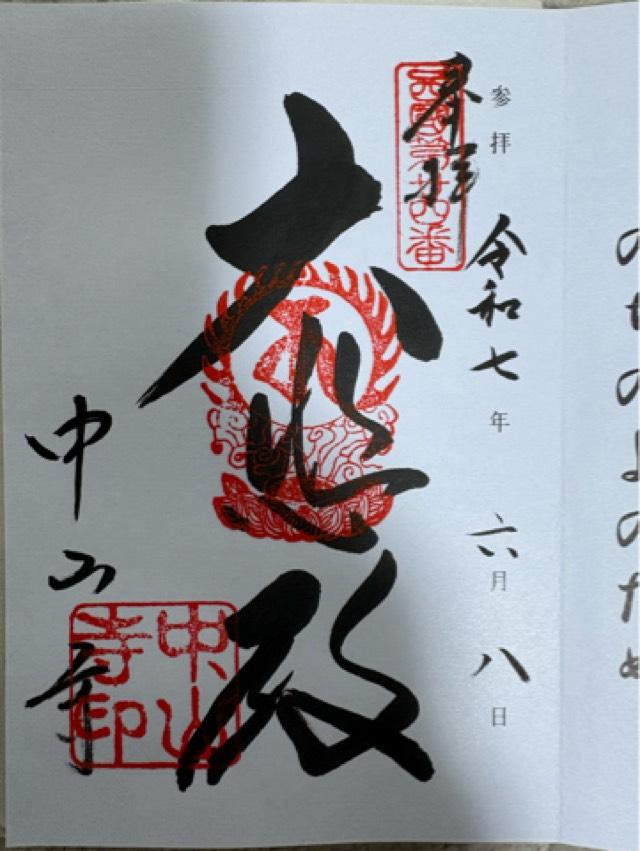 参拝
奉拝
西國第廿四番
令和七年 六月 八日
大悲殿
中山寺
中山寺印
のちのよのため